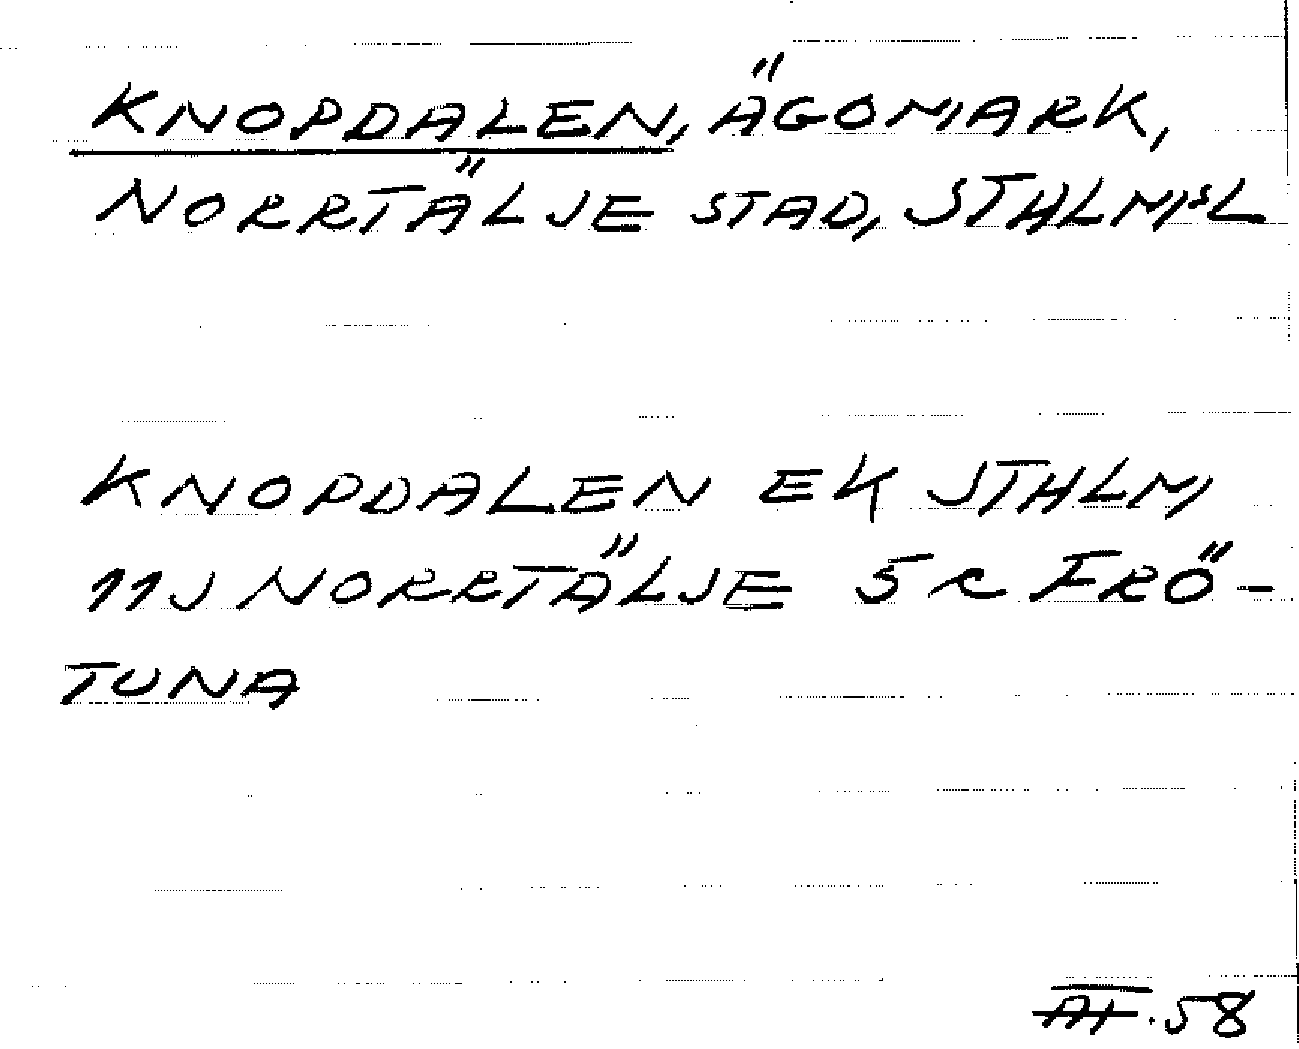 KNOPDALEN, ÄGOMARK,
NORRTÄLJE STAD, STHLMSL
KNOPDALEN EK STHLM,
11J NORRTÄLJE 5 c FRÖ-
TUNA
.58